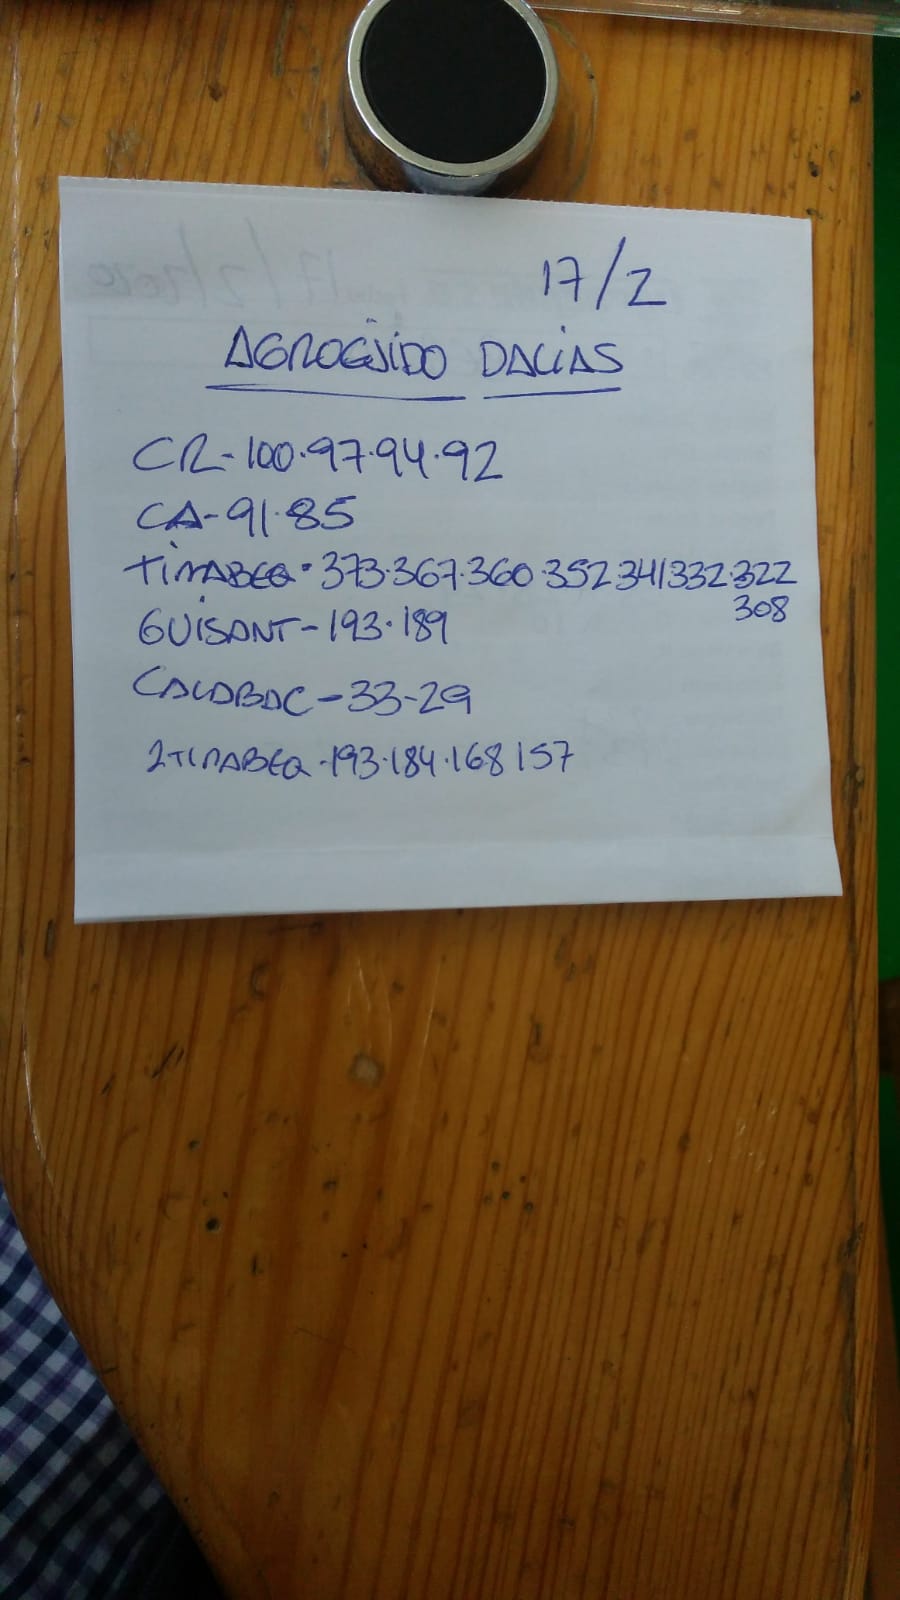 17/2
AGROEJIDO DALIAS
CR-100.97.94.92
CA-91.85
TIRABEQ.373.367.360.352.341332.322
308
GUISANT-193.189
CALABAC-33-29
2TIRABEQ.193.184.168157
17/2/2020